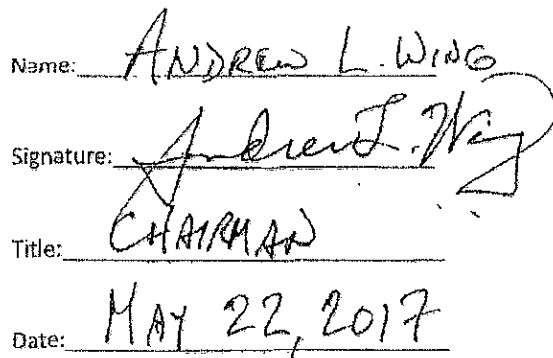 Name: ANDREW L. WING
Signature: Andrew L. Wing
Title: CHAIRMAN
Date: MAY 22, 2017